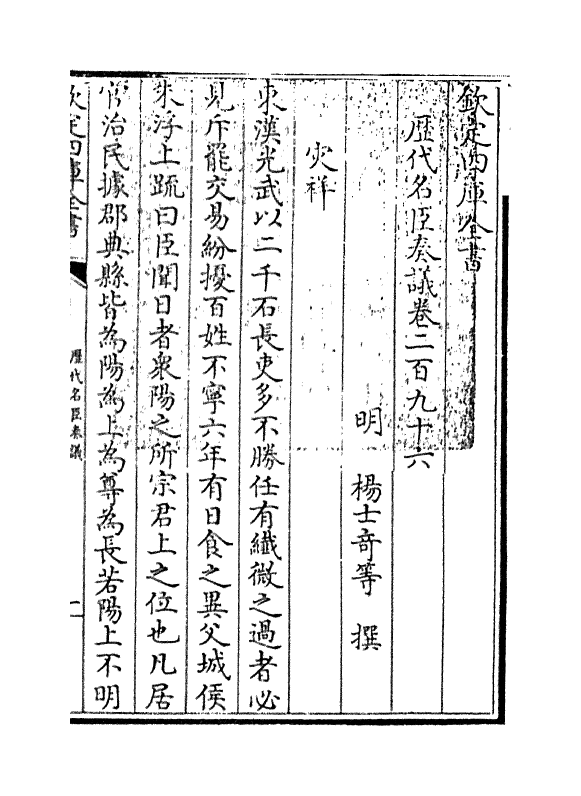 欽定四庫全書
歴代名臣奏議卷二百九十六
明　楊士奇等　撰
灾祥
東漢光武以二千石長吏多不勝任有纖微之過者必
見斥罷交易紛擾百姓不寧六年有日食之異父城侯
朱浮上疏曰臣聞日者衆陽之所宗君上之位也凡居
官治民據郡典縣皆為陽為上為尊為長若陽上不明
欽定四庫全書
歴代名臣奏議